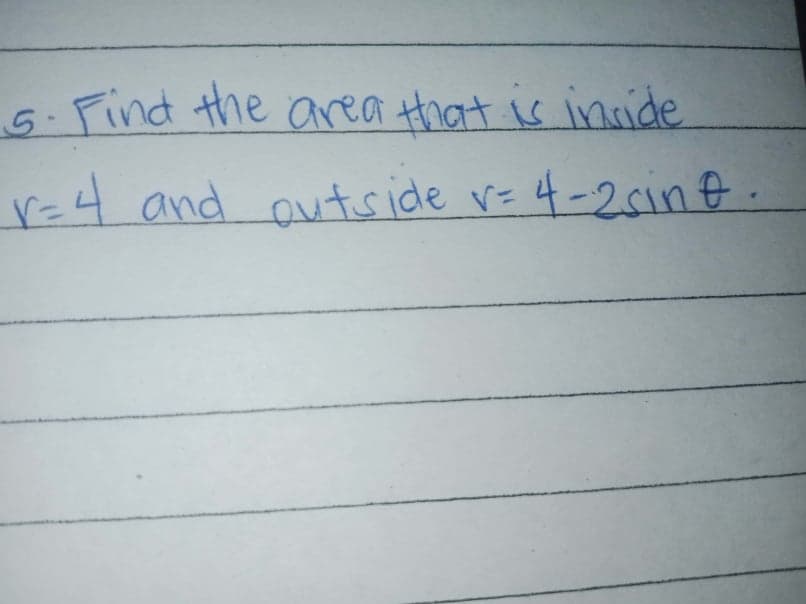 5. Find the area that is inside
r=4 and outside r= 4-2sinθ.